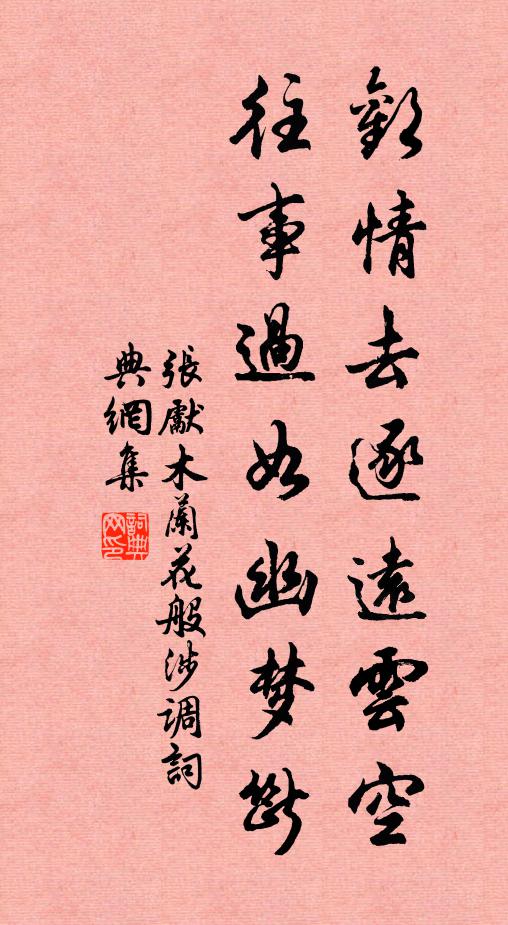 歡情去逐遠雲空
往事過如幽梦斷
張獻木蘭花般涉调詞
典網集
詞典网印